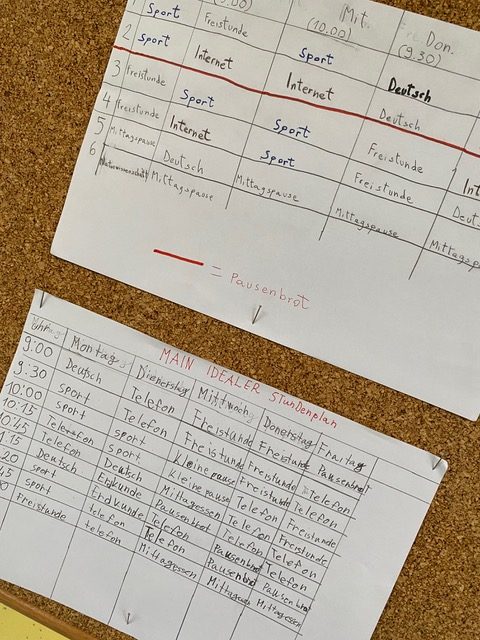 Mit. Don.
(10.00) (9.30)
1 Sport Freistunde Sport Deutsch
2 Sport Internet Internet Deutsch
3 Freistunde Sport Sport Freistunde Int
4 Freistunde Internet Sport Freistunde Deuts
5 Mittagspause Deutsch Mittagspause Mittagspause Mittagsp
6 Naturwissenschaft Mittagspause
= Pausenbrot
MAIN IDEALER Stundenplan
Montag Dienerstag Mittwoch Donerstag Fraitag
9:00 Deutsch Telefon Freistunde Freistunde Pausenbrot
9:30 sport Telefon Freistunde Freistunde Telefon
10:00 sport sport Kleine pause Freistunde Telefon
10:15 Telefon sport Kleine pause Telefon Freistunde
10:45 Telefon Deutsch Mittagessen Telefon Freistunde
1:15 Deutsch Erdkunde Pausenbrot Telefon Telefon
20 sport Erdkunde Telefon Pausenbrot Telefon
45 sport telefon Telefon Pausenbrot Pausenbrot
Freistunde telefon Mittagessen Mittagessen